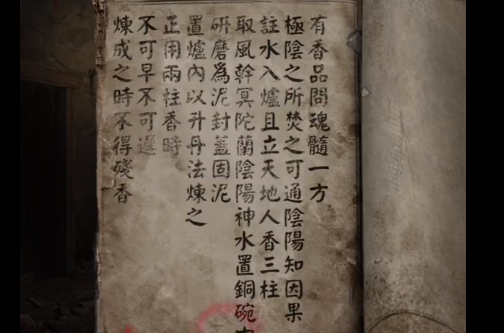 有香品問魂髓一方
極陰之所焚之可通陰陽知因果
註水入爐且立天地人香三柱
取風幹冥陀蘭陰陽神水置銅碗
研磨為泥封蓋固泥
置爐內以升丹法煉之
正用兩柱香時
不可早不可遲
煉成之時不得殘香